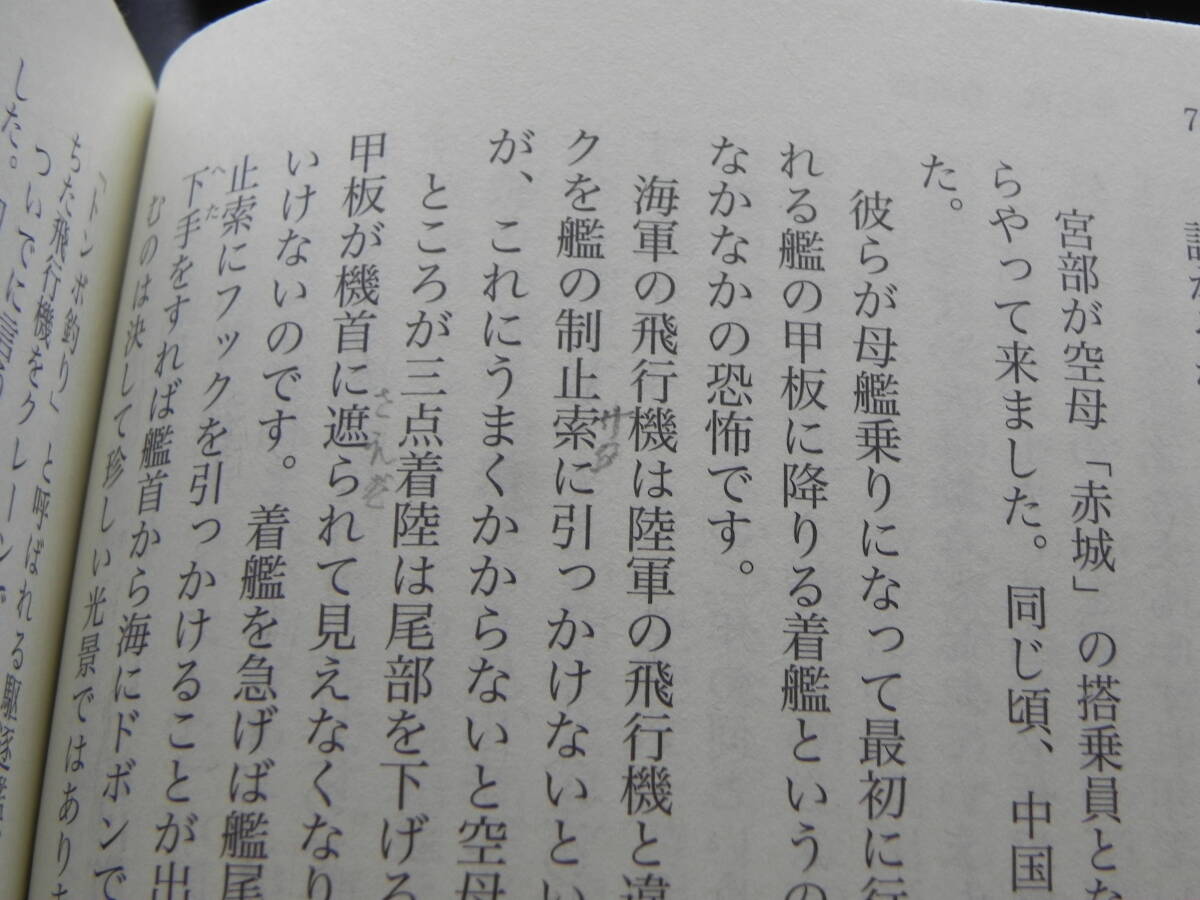 7
宮部が空母「赤城」の搭乗員とな
らやって来ました。同じ頃、中国
た。
彼らが母艦乗りになって最初に行
れる艦の甲板に降りる着艦というの
なかなかの恐怖です。
海軍の飛行機は陸軍の飛行機と違
サク
クを艦の制止索に引っかけないとい
が、これにうまくかからないと空母
ところが三点着陸は尾部を下げる
さえぎ
甲板が機首に遮られて見えなくなり
いけないのです。着艦を急げば艦尾
止索にフックを引っかけることが出
へた
下手をすれば艦首から海にドボンで
むのは決して珍しい光景ではありま
「トンボ釣り」と呼ばれる駆逐艦
ちた飛行機をクレーンで
ついでに言
した。